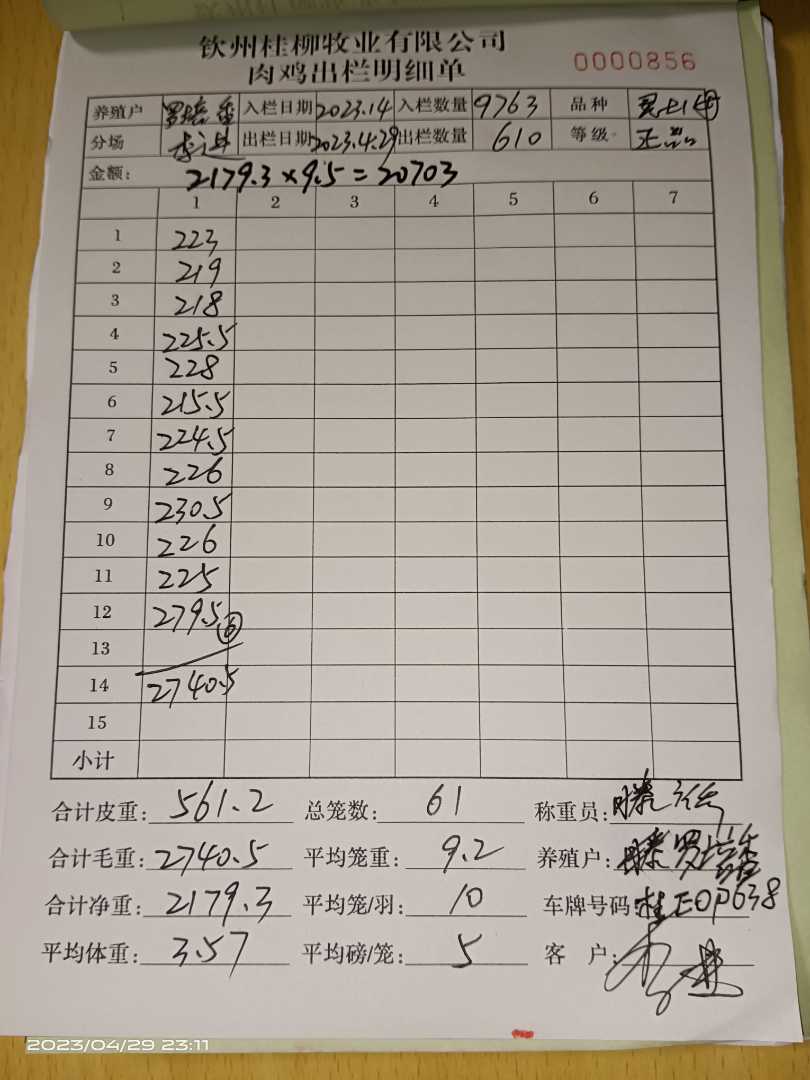 钦州桂柳牧业有限公司
肉鸡出栏明细单 0000856
养殖户 罗培 入栏日期 2023.14 入栏数量 9763 品种
分场 出栏日期 2023.4.29 出栏数量 610 等级 正品
金额: 2179.3×9.5=20703
1 2 3 4 5 6 7
1 223
2 219
3 218
4 225.5
5 228
6 215.5
7 224.5
8 226
9 230.5
10 226
11 225
12 279.5 ⑥
13
14 2740.5
15
小计
合计皮重: 561.2 总笼数: 61 称重员:
合计毛重: 2740.5 平均笼重: 9.2 养殖户: 罗培
合计净重: 2179.3 平均笼/羽: 10 车牌号码: 桂EOP638
平均体重: 3.57 平均磅/笼: 5 客 户:
2023/04/29 23:11